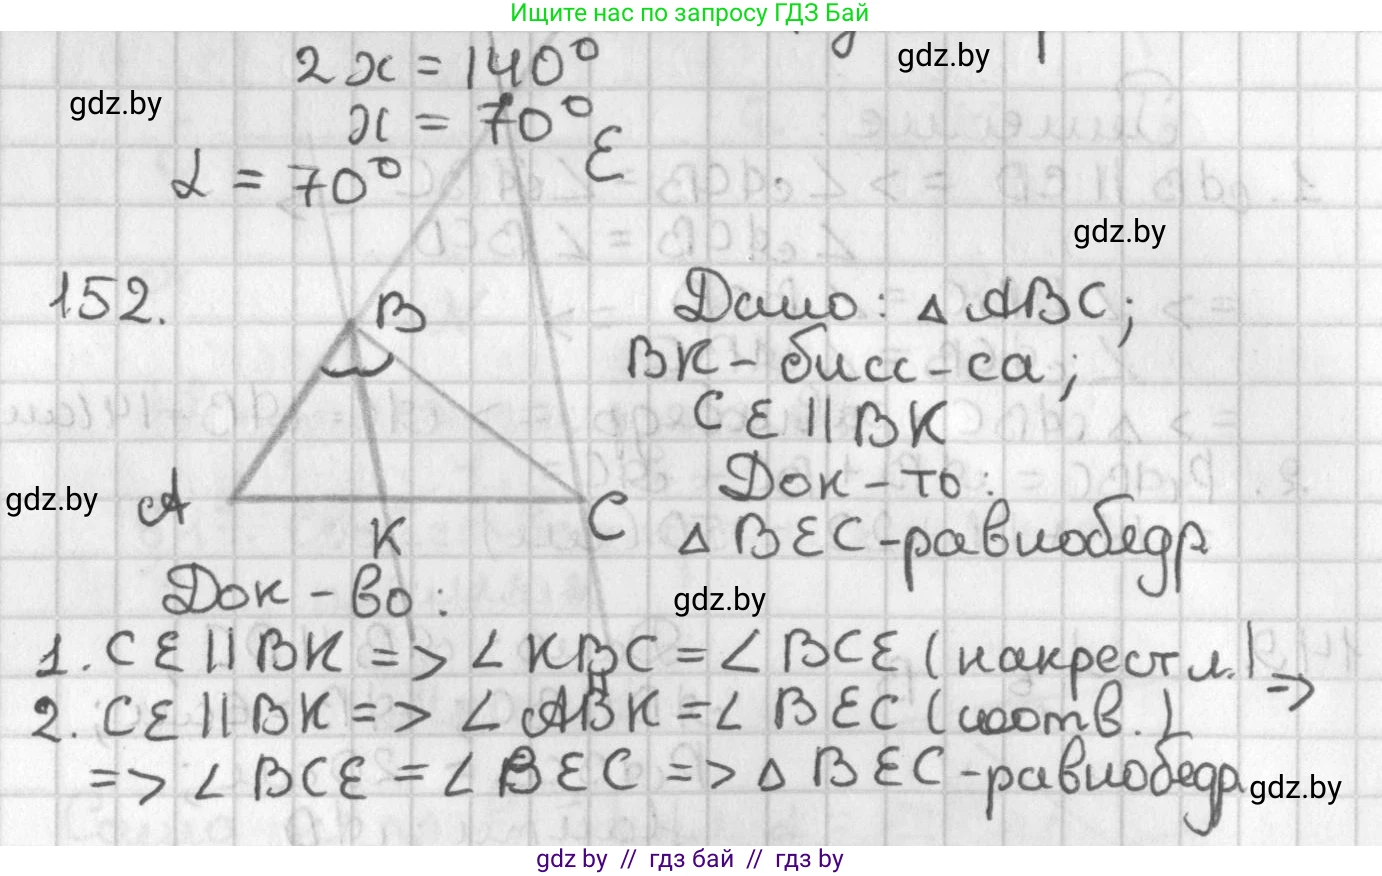 Ищите нас по запросу ГДЗ Бай
2x = 140°
gdz.by
gdz.by
x = 70°
E
α = 70°
gdz.by
152.
B
Дано: △ ABC;
BK - бисс-са;
CE || BK
Док-ть:
gdz.by
A
K
C
△ BEC - равнобедр
Док-во:
gdz.by
1. CE || BK => ∠ KBC = ∠ BCE (накрест л.) =>
2. CE || BK => ∠ ABK = ∠ BEC (соотв.)
=> ∠ BCE = ∠ BEC => △ BEC - равнобедр
gdz.by
gdz.by // гдз бай // гдз by